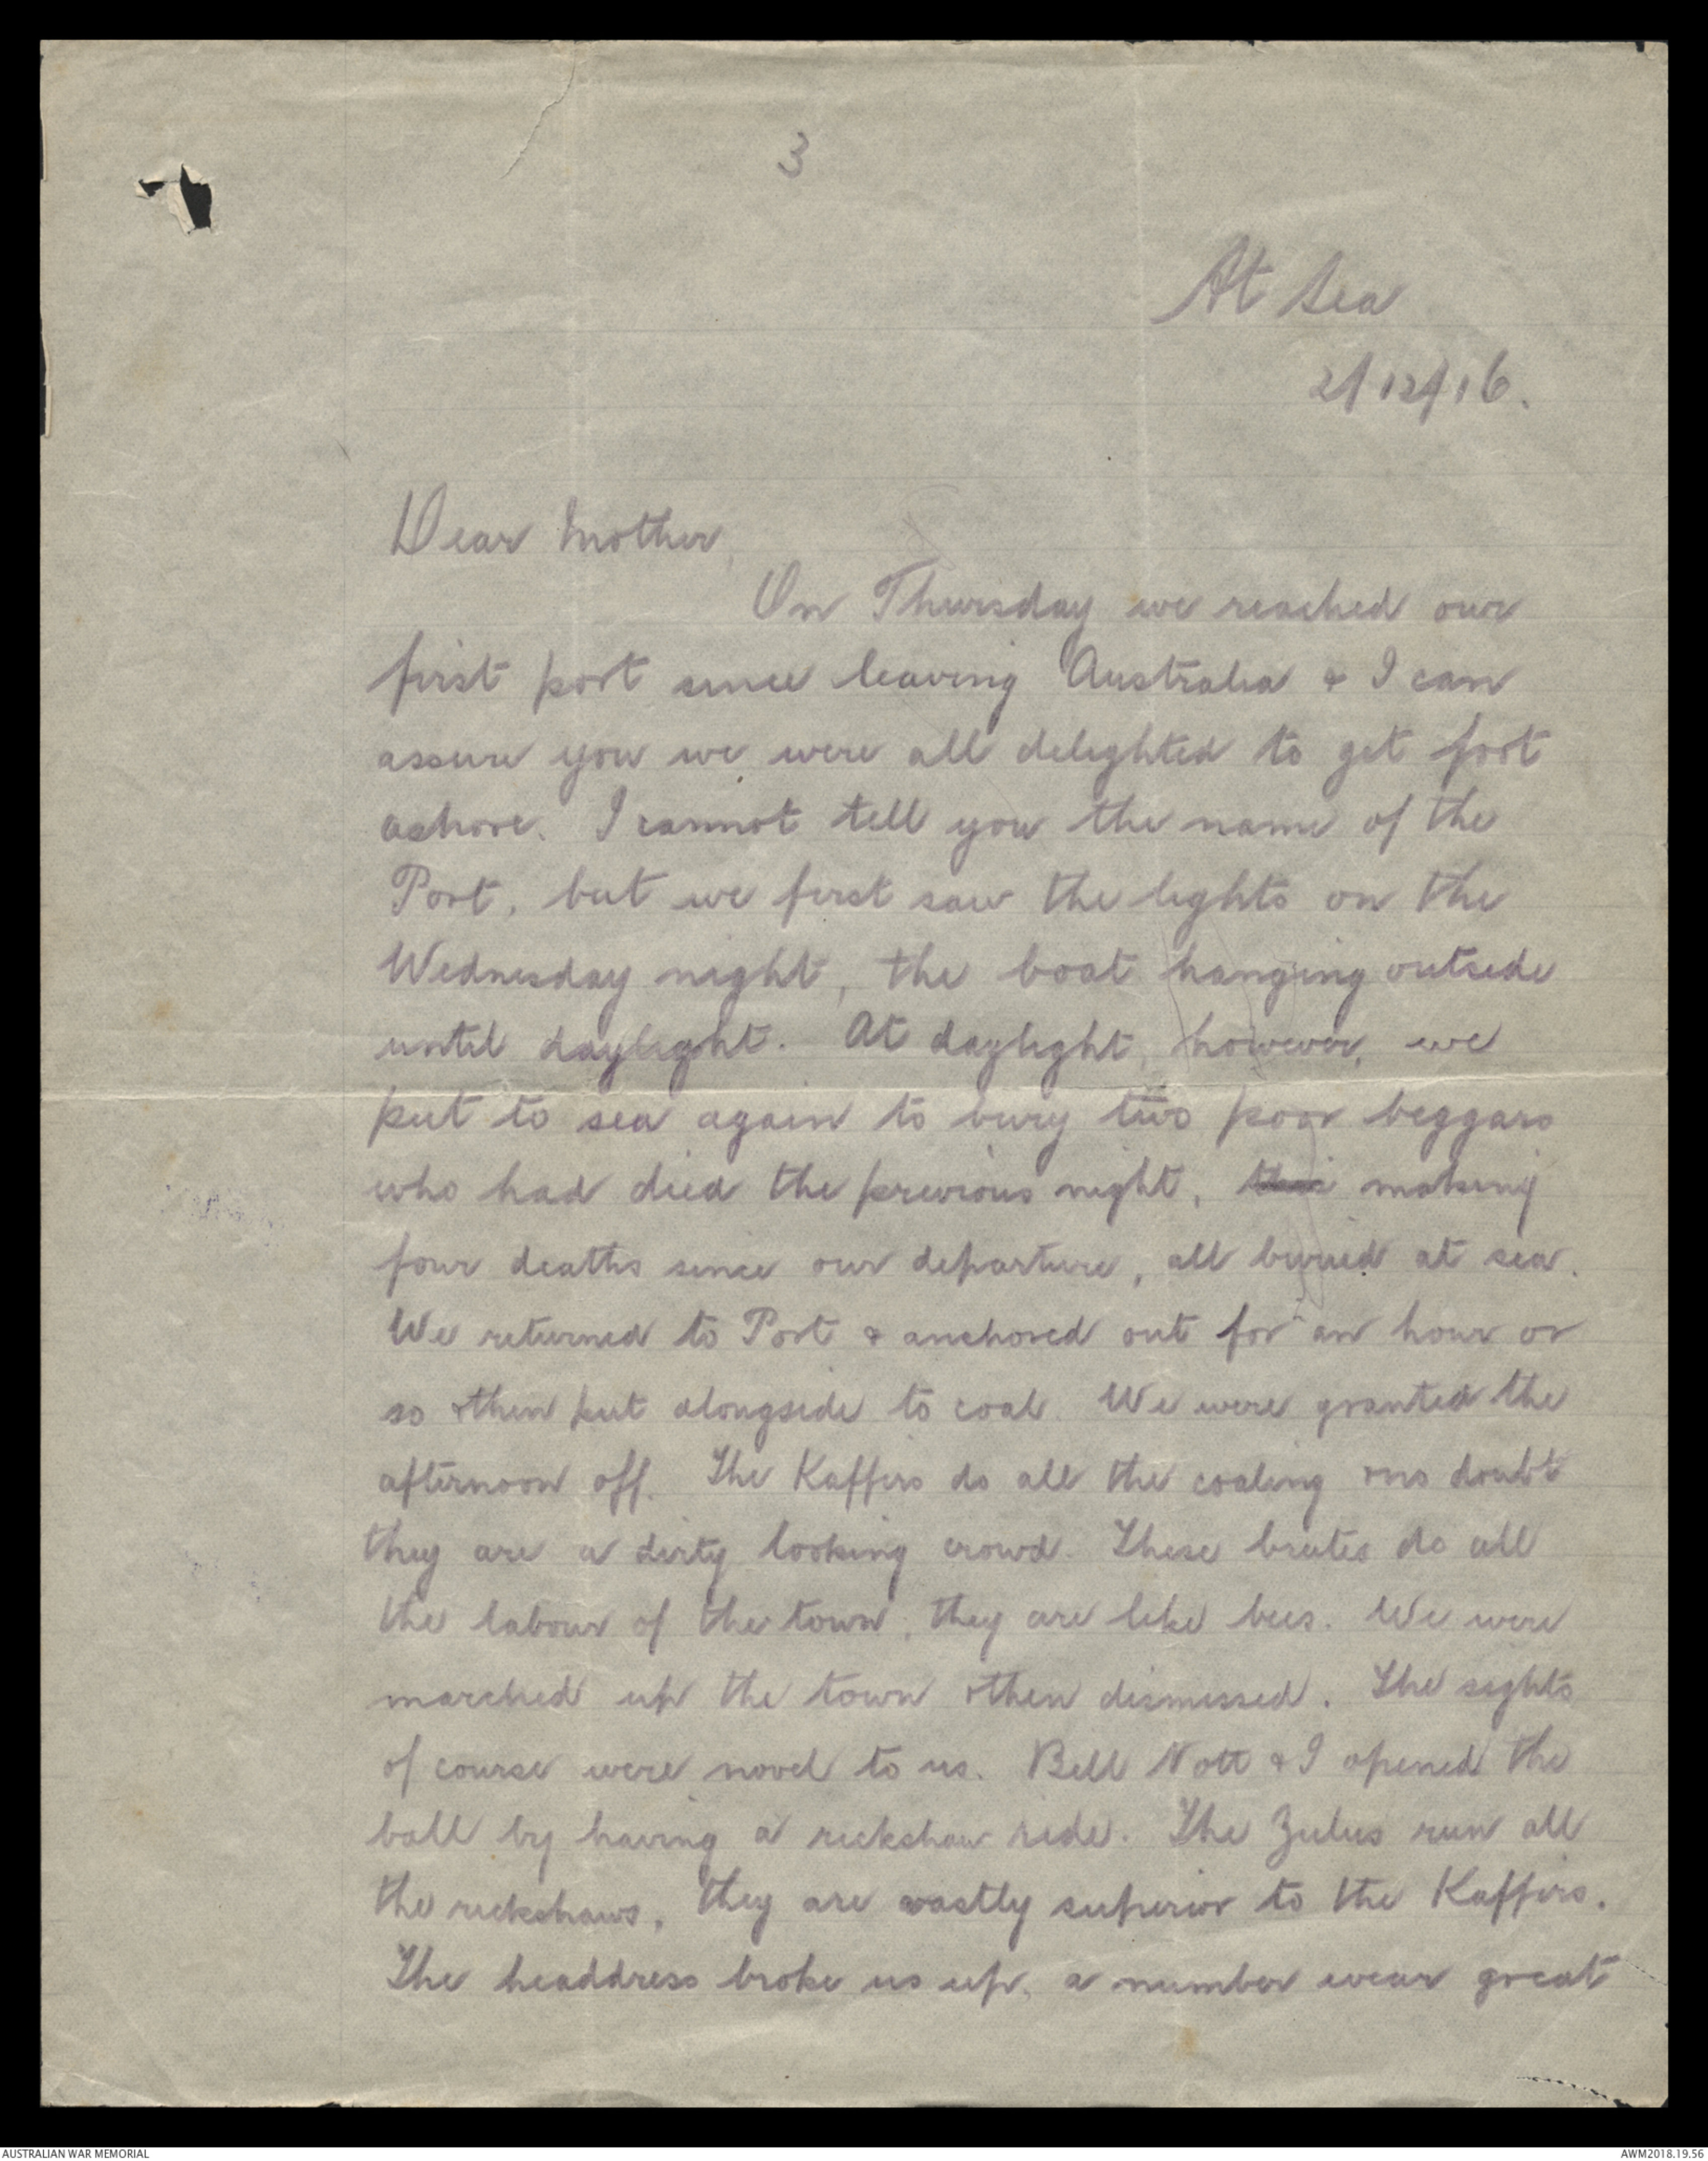 3
At Sea
2/12/16.
Dear Mother,
On Thursday we reached our
first port since leaving Australia & I can
assure you we were all delighted to get foot
ashore. I cannot tell you the name of the
Port, but we first saw the lights on the
Wednesday night, the boat hanging outside
until daylight. At daylight, however, we
put to sea again to bury two poor beggars
who had died the previous night, making
four deaths since our departure, all buried at sea.
We returned to Port & anchored out for an hour or
so & then put alongside to coal. We were granted the
afternoon off. The Kaffirs do all the coaling & no doubt
they are a dirty looking crowd. These brutes do all
the labour of the town, they are like bees. We were
marched up the town & then dismissed. The sights
of course were novel to us. Bill Nott & I opened the
ball by having a rickshaw ride. The Zulus run all
the rickshaws, they are vastly superior to the Kaffirs.
The headdress broke us up, a number wear great
AUSTRALIAN WAR MEMORIAL
AWM2018.19.56